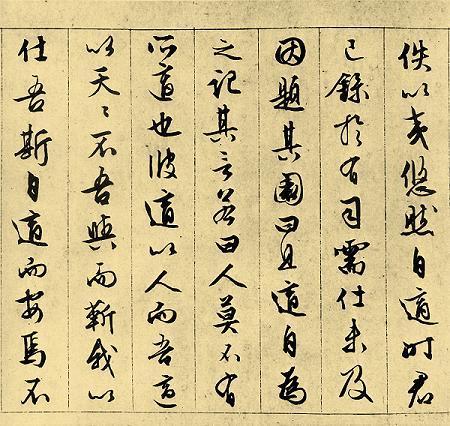 佚以老悠然自適时君
已錄於有司需仕未及
因題其園曰且適自為
之記其言若曰人莫不有
所適也彼適以人而吾適
以天〻不吾與而靳我以
仕吾斯自適而安焉不